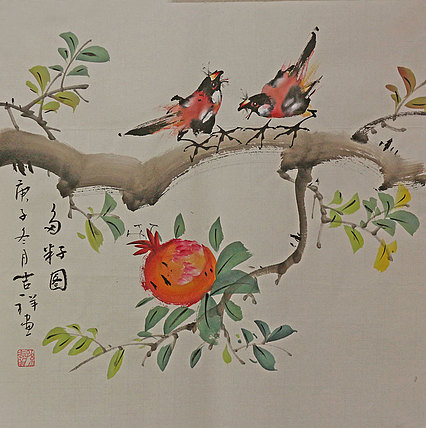 多籽图
庚子冬月吉祥畫